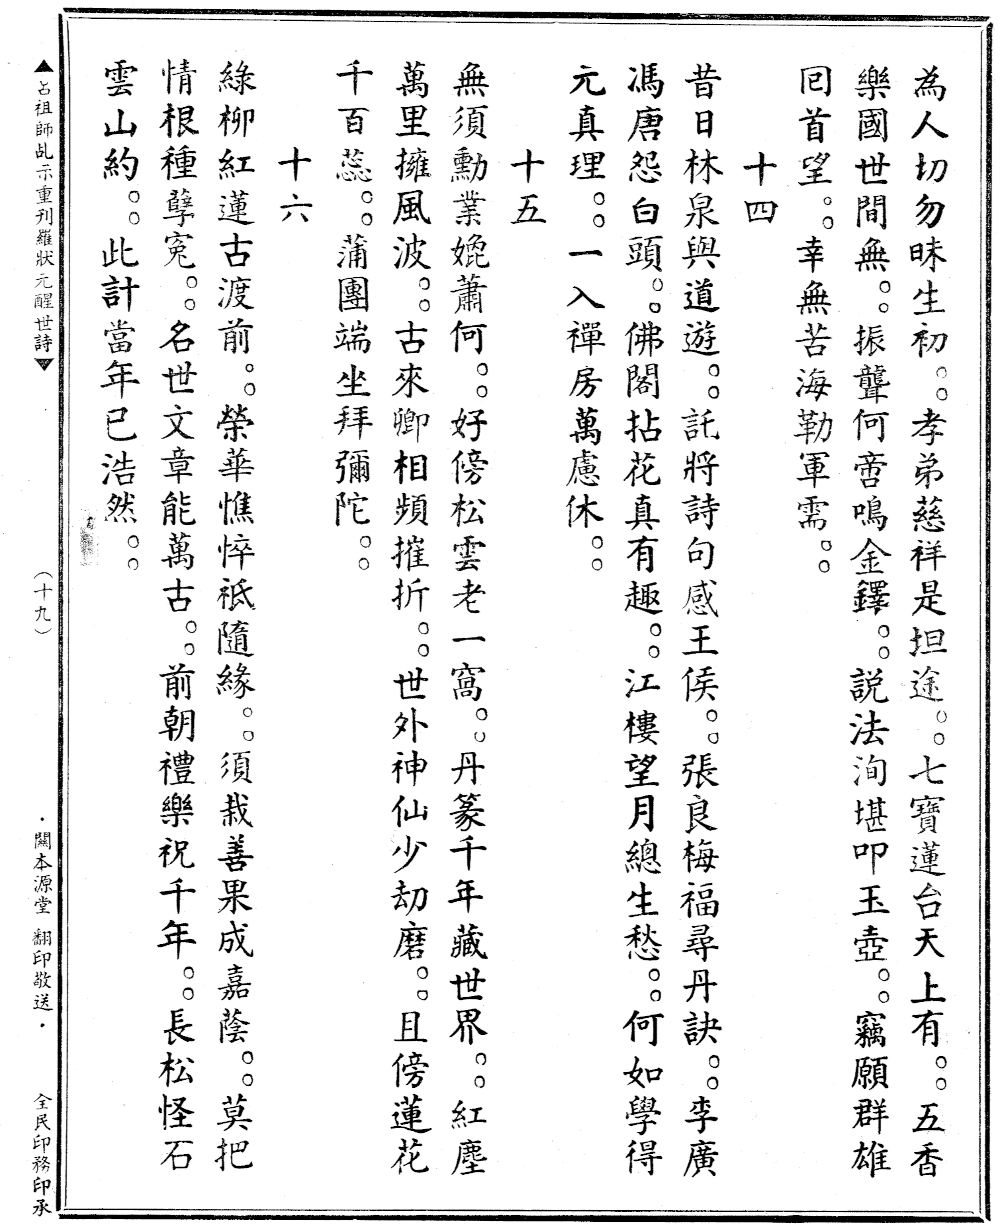 為人切勿昧生初。。孝弟慈祥是坦途。。七寶蓮台天上有。。五香
樂國世間無。。振聾何啻鳴金鐸。。説法洵堪叩玉壺。。竊願群雄
囘首望。。幸無苦海勒軍需。。
十四
昔日林泉與道遊。。託將詩句感王侯。。張良梅福尋丹訣。。李廣
馮唐怨白頭。。佛閣拈花真有趣。。江樓望月總生愁。。何如學得
元真理。。一入禪房萬慮休。。
十五
無須勳業媲蕭何。。好傍松雲老一窩。。丹篆千年藏世界。。紅塵
萬里擁風波。。古來卿相頻摧折。。世外神仙少劫磨。。且傍蓮花
千百蕊。。蒲團端坐拜彌陀。。
十六
綠柳紅蓮古渡前。。榮華憔悴祗隨緣。。須栽善果成嘉蔭。。莫把
情根種孽冤。。名世文章能萬古。。前朝禮樂祝千年。。長松怪石
雲山約。。此計當年已浩然。。
▲呂祖師乩示重刊羅狀元醒世詩▼
(十九)
・闢本源堂 翻印敬送・
全民印務印承